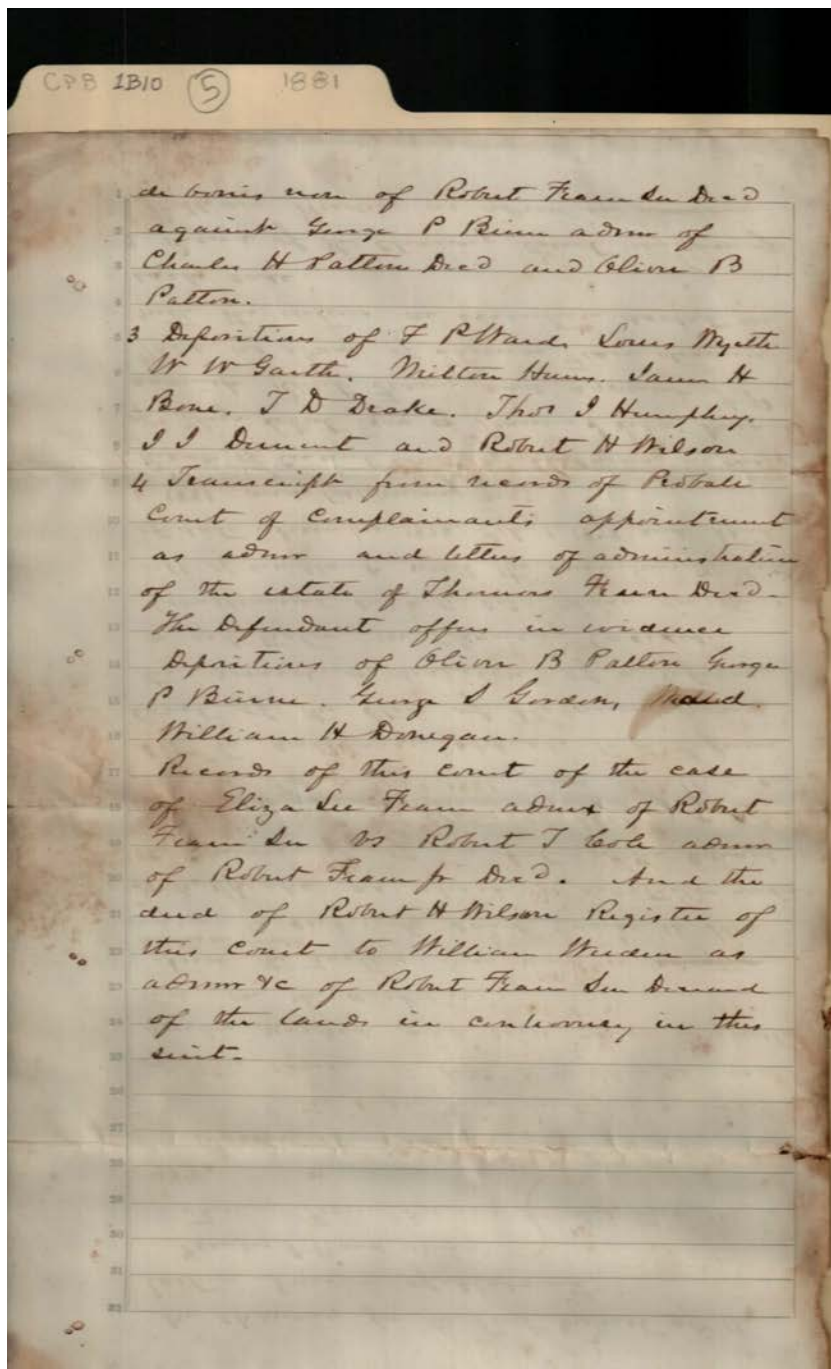 CPB 1B10 5 1881
1 de bonis non of Robert Fearn Sen Decd
2 against George P Beirne admr of
3 Charles H Patton Decd and Oliver B
4 Patton.
5 3 Depositions of F P Ward. Louis Wyeth
6 W W Garth. Milton Humes. James H
7 Bone. T D Drake. Thos J Humphrey.
8 J J Dement and Robert H Wilson
9 4 Transcript from records of Probate
10 Court of complainants appointment
11 as admr and letters of administration
12 of the estate of Thomas Fearn Decd-
13 The Defendant offers in evidence
14 Depositions of Oliver B Patton George
15 P Beirne. George S Gordon,
16 William H Donegan.
17 Records of this court of the case
18 of Eliza Lee Fearn admx of Robert
19 Fearn Sen vs Robert T Cole admr
20 of Robert Fearn jr Decd. And the
21 deed of Robert H Wilson Register of
22 this Court to William Weeden as
23 admr &c of Robert Fearn Sen Deceased
24 of the lands in controversy in this
25 suit-
26
27
28
29
30
31
32